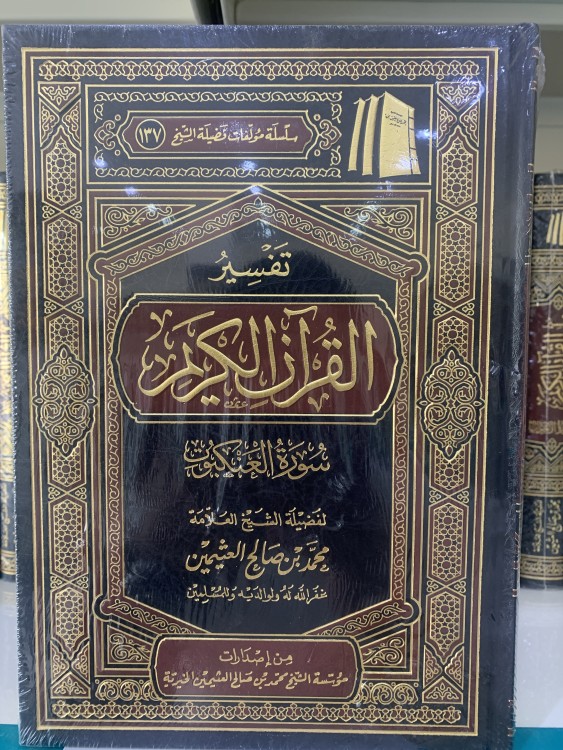 سلسلة مؤلفات فضيلة الشيخ ١٣٧
تَفْسِيرُ
القُرآنِ الكَرِيْمِ
سُورَةُ العَنكبُوت
لفَضيلَة الشيخ العَلّامَة
محمّد بن صَالح العثيمين
غفر الله له ولوالديه وللمسلمين
من إصدارات
مؤسسة الشيخ محمد بن صالح العثيمين الخيرية